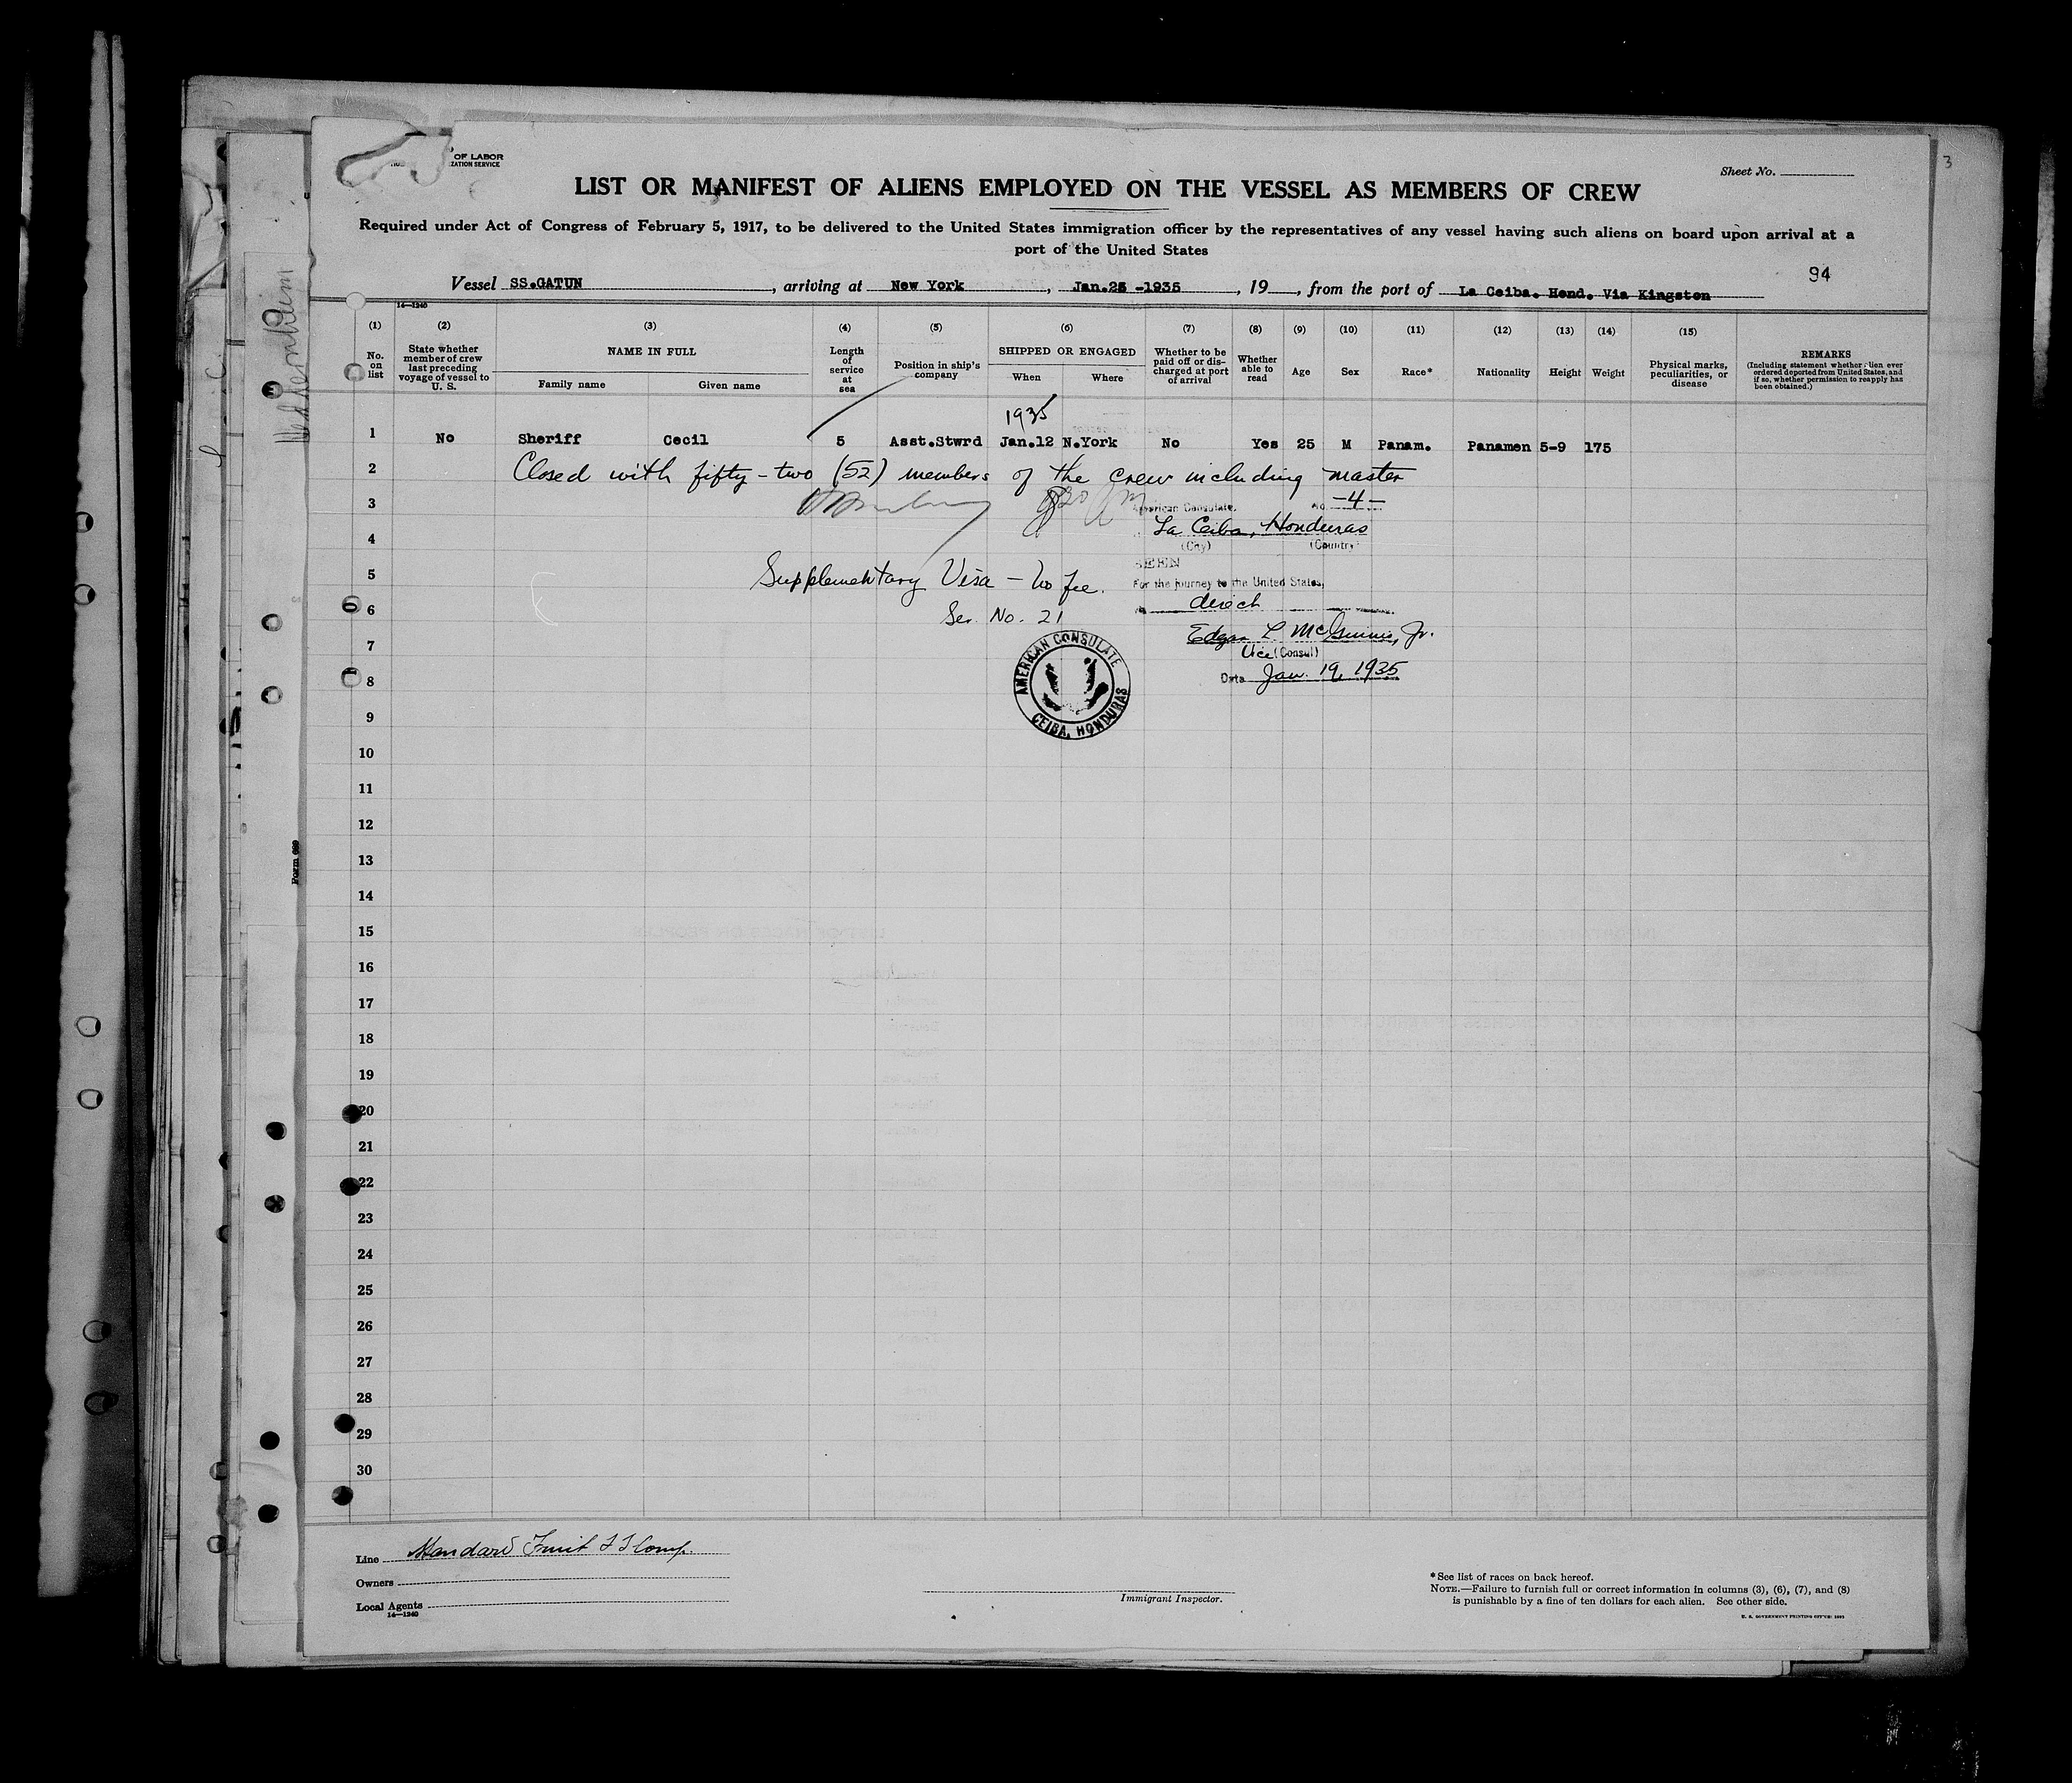 3
OF LABOR
ZATION SERVICE
Sheet No.
LIST OR MANIFEST OF ALIENS EMPLOYED ON THE VESSEL AS MEMBERS OF CREW
Required under Act of Congress of February 5, 1917, to be delivered to the United States immigration officer by the representatives of any vessel having such aliens on board upon arrival at a
port of the United States
94
Vessel SS.GATUN , arriving at New York , Jan.25 -1935 , 19 , from the port of La Ceiba. Hond. Via Kingston
14—1240
(1) (2) (3) (4) (5) (6) (7) (8) (9) (10) (11) (12) (13) (14) (15)
No. on list
State whether member of crew last preceding voyage of vessel to U. S.
NAME IN FULL
Family name Given name
Length of service at sea
Position in ship's company
SHIPPED OR ENGAGED
When Where
Whether to be paid off or discharged at port of arrival
Whether able to read
Age
Sex
Race*
Nationality
Height
Weight
Physical marks, peculiarities, or disease
REMARKS
(Including statement whether alien ever ordered deported from United States, and if so, whether permission to reapply has been obtained.)
1935
1 No Sheriff Cecil 5 Asst.Stwrd Jan.12 N.York No Yes 25 M Panam. Panamen 5-9 175
2 Closed with fifty-two (52) members of the crew including master
3 American Consulate. No. -4-
La Ceiba, Honduras
4 (City) (Country)
SEEN
5 Supplementary Visa - No fee. For the journey to the United States,
6 direct
Ser. No. 21
Edgar L. McGinnis, Jr.
7 Vice (Consul)
8 Date Jan. 19, 1935
AMERICAN CONSULATE
CEIBA, HONDURAS
9
10
11
12
13
14
15
16
17
18
19
20
21
22
23
24
25
26
27
28
29
30
Form 689
Line Standard Fruit S S Comp.
Owners
Local Agents
14—1240
Immigrant Inspector.
*See list of races on back hereof.
NOTE.—Failure to furnish full or correct information in columns (3), (6), (7), and (8)
is punishable by a fine of ten dollars for each alien. See other side.